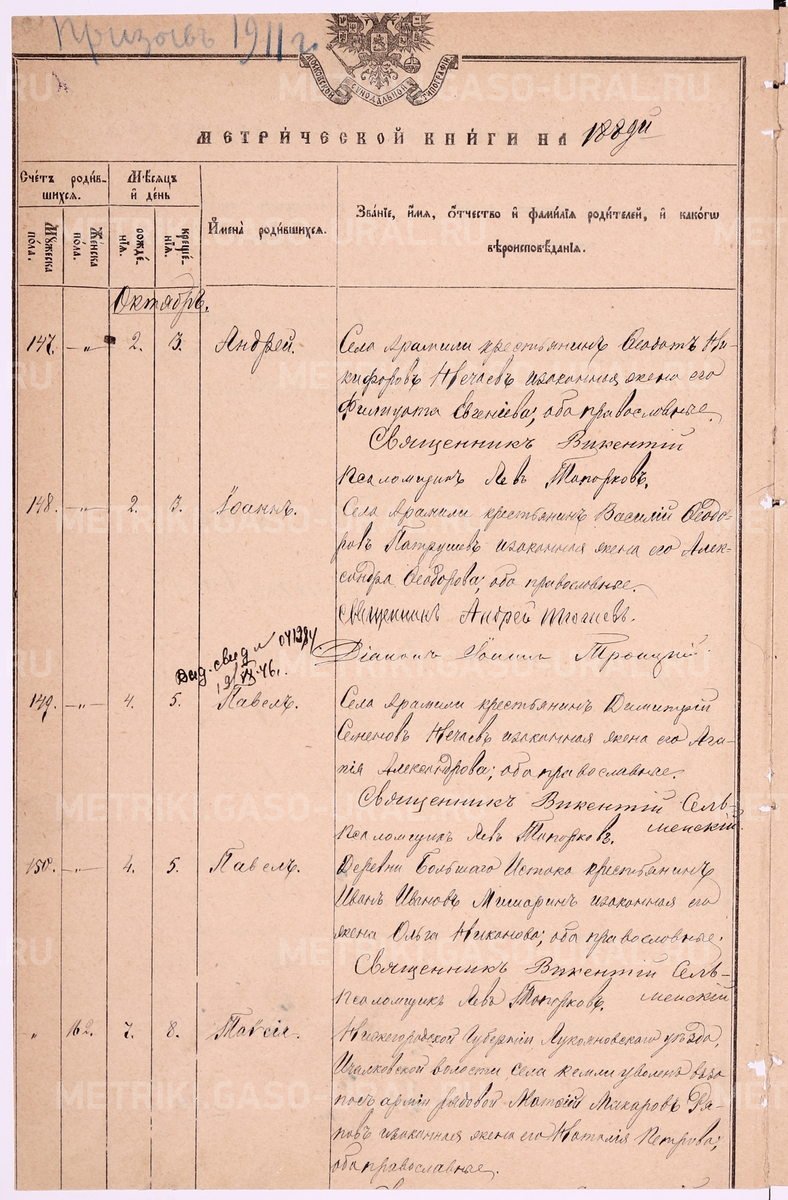 Призывъ 1911 г.
МОСКОВСКОЙ СѴНОДАЛЬНОЙ ТИПОГРАФІИ
МЕТРИ́ЧЕСКОЙ КНИ́ГИ НА 188
Сче́тъ роди́в-
шихся.
М҃ѣсяцъ
и҆ де́нь
И҆мена̀ роди́вшихся.
Зва́ніе, и҆́мя, ѻ҆́тчество и҆ фами́лія роди́телей, и҆ како́гѡ
вѣроисповѣ́данія.
Мꙋ́жеска
по́ла.
Же́нска
по́ла.
рожде́-
нія.
креще́-
нія.
Октябрь.
147. —„— 2. 3. Андрей.
Села Арамили крестьянинъ Ѳеодотъ Ни-
кифоровъ Нечаевъ и законная жена его
Евгеніева; оба православные.
Священникъ Викентій
Псаломщикъ Левъ Топорковъ.
148. —„— 2. 3. Іоаннъ.
Села Арамили крестьянинъ Василій Ѳеодо-
ровъ Патрушевъ и законная жена его Алек-
сандра Ѳеодорова; оба православные.
Священникъ Андрей
Діаконъ Троицкій.
Выд. свид. №
149. —„— 4. 5. Павелъ.
Села Арамили крестьянинъ Димитрій
Семеновъ Нечаевъ и законная жена его Ага-
пія Александрова; оба православные.
Священникъ Викентій Сель-
менскій.
Псаломщикъ Левъ Топорковъ.
150. —„— 4. 5. Павелъ.
Деревни Большаго Истока крестьянинъ
Иванъ Ивановъ Мишаринъ и законная его
жена Ольга Никанова; оба православные.
Священникъ Викентій Сель-
менскій
Псаломщикъ Левъ Топорковъ.
„ 162. 7. 8. Таисія.
Нижегородской Губерніи Лукояновскаго уѣзда,
Ичалковской волости, села Кемли уволенъ въ за-
пасъ арміи рядовой Макаровъ
и законная жена его Наталія Петрова;
оба православные.
METRIKI.GASO-URAL.RU